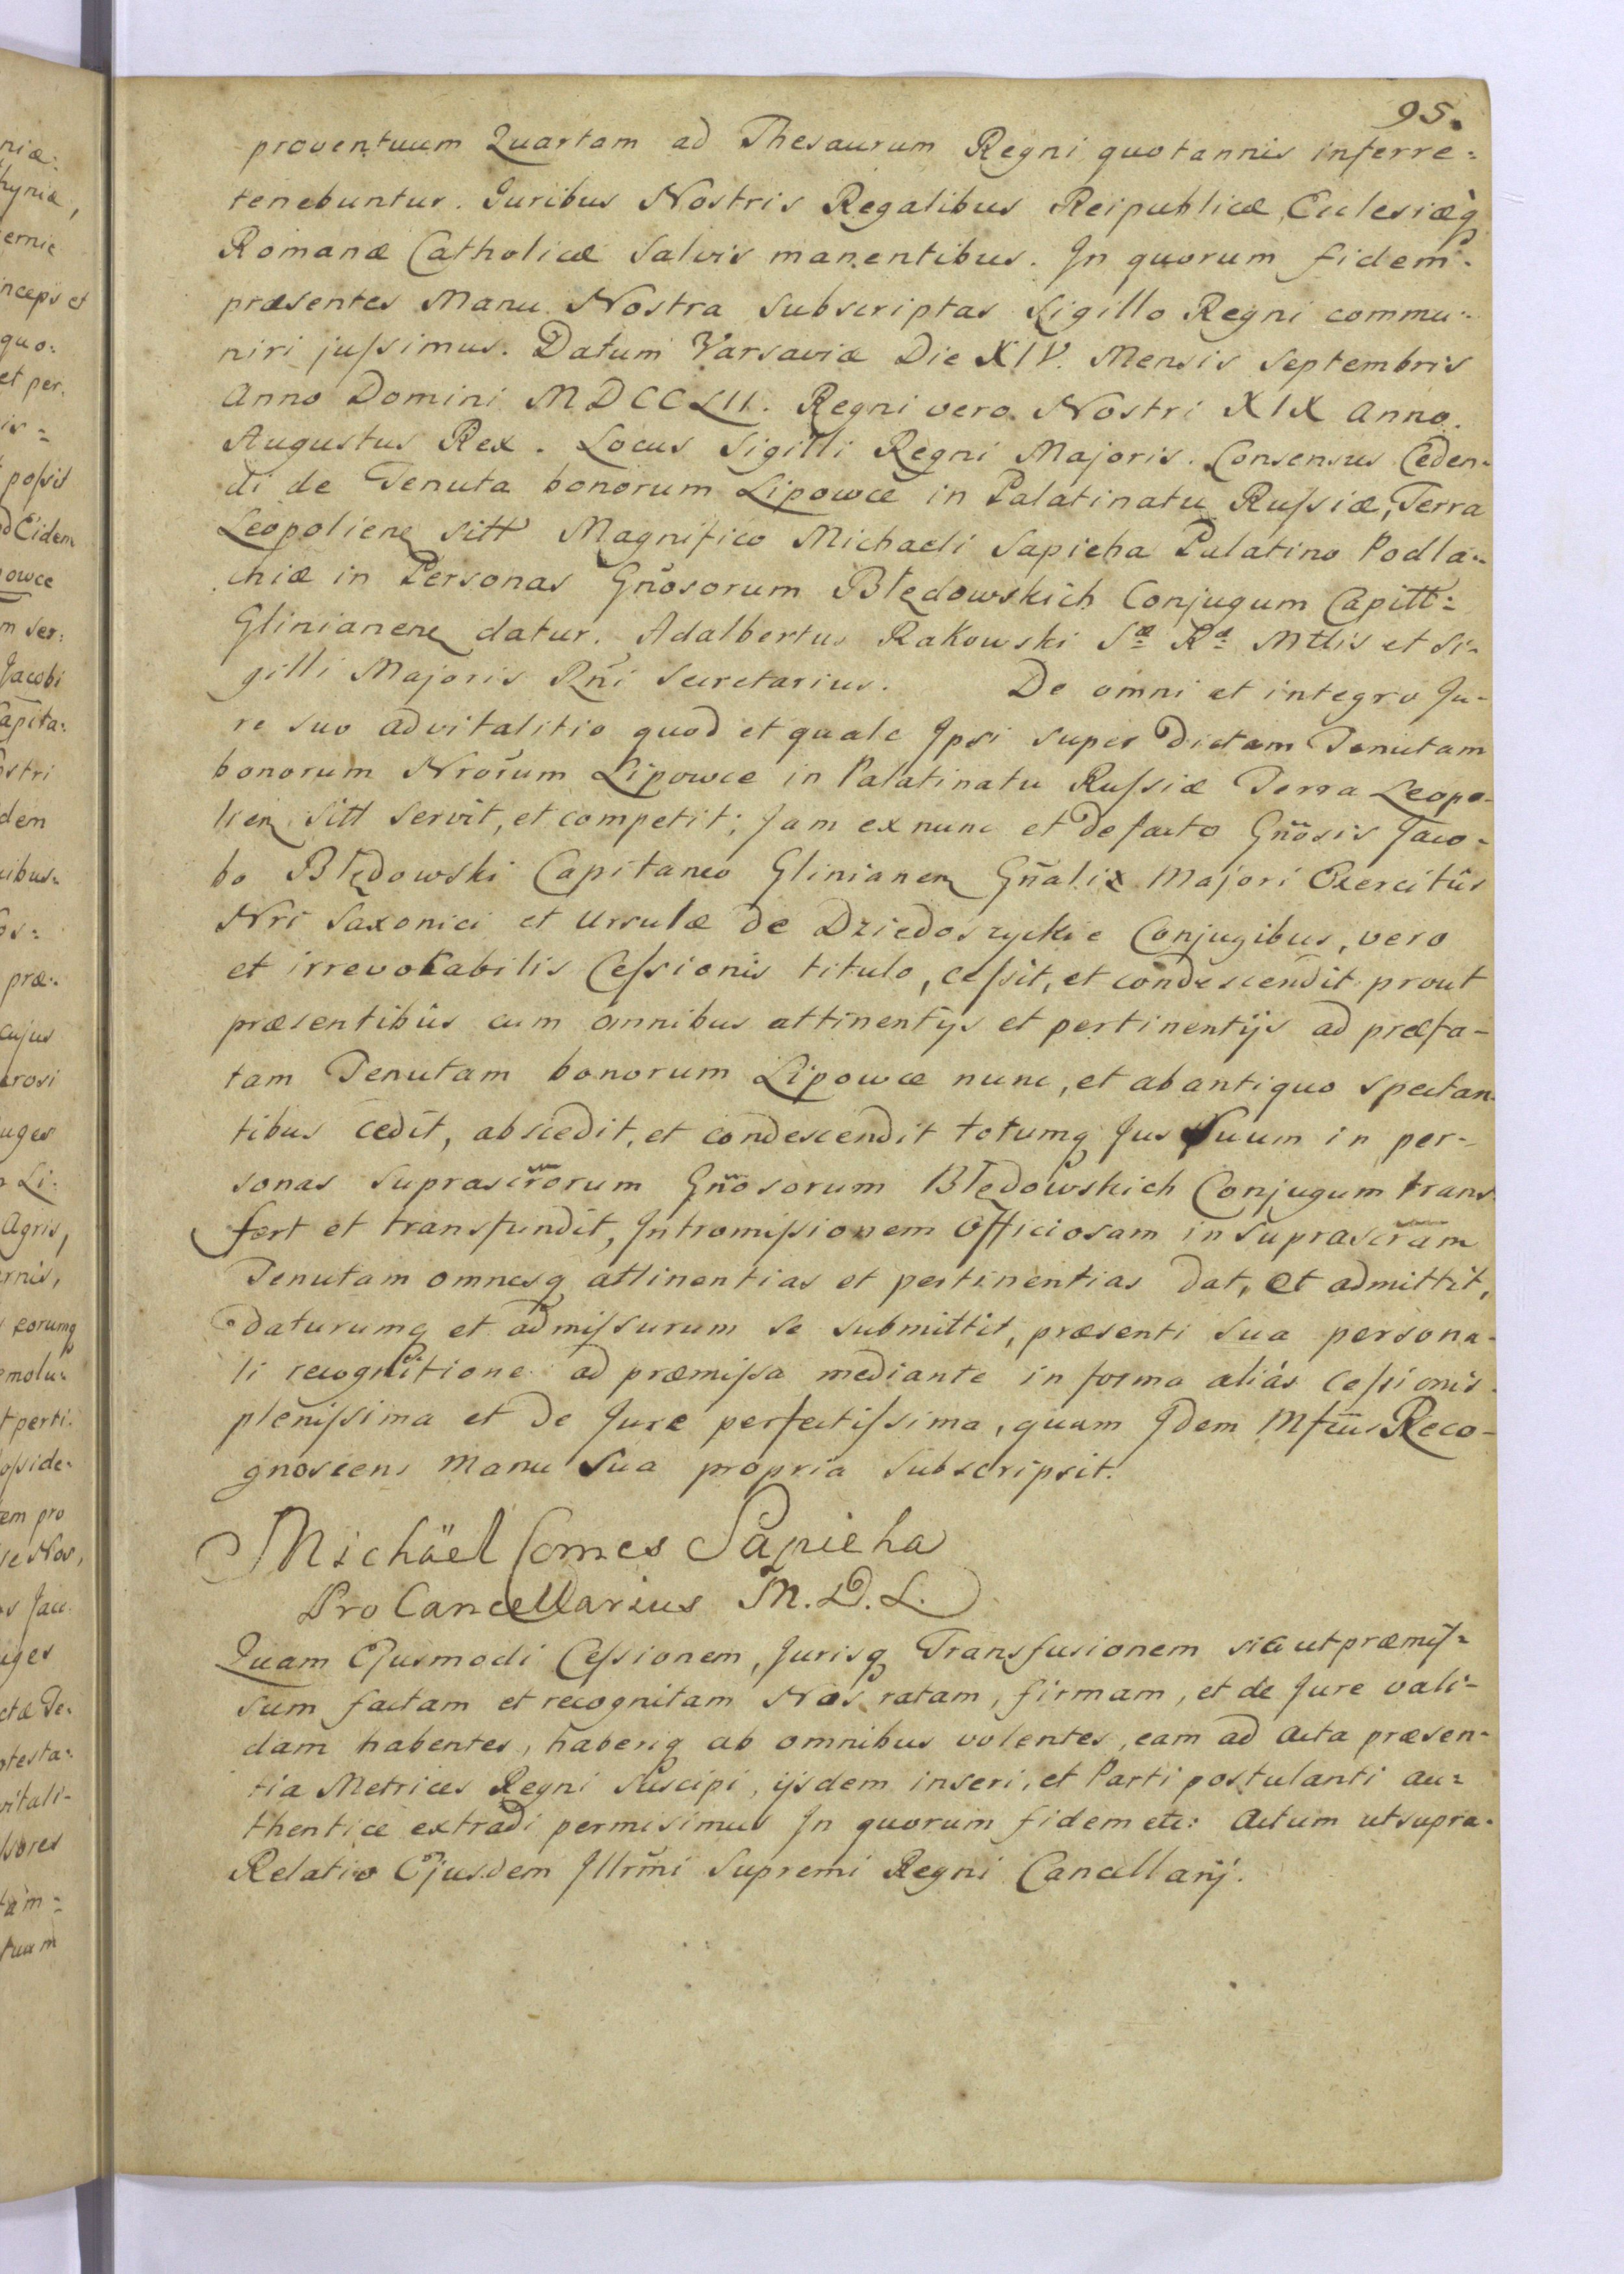 95.
proventuum Quartam ad Thesaurum Regni quotannis inferre=
tenebuntur. Juribus Nostris Regalibus Reipublicæ, Ecclesiæq
Romanæ Catholicæ salvis manentibus. In quorum fidem
præsentes Manu Nostra subscriptas Sigillo Regni commu=
niri jussimus. Datum Varsaviæ Die XIV. Mensis Septembris
Anno Domini MDCCLII. Regni vero Nostri XIX Anno.
Augustus Rex. Locus Sigilli Regni Majoris. Consensus Ceden=
di de Tenuta bonorum Lipowce in Palatinatu Russiæ, Terra
Leopolien sitt Magnifico Michaeli Sapieha Palatino Podla=
chiæ in Personas Gnosorum Błędowskich Conjugum Capitt=
Glinianen datur. Adalbertus Rakowski Sæ Ræ Mttis et Si=
gilli Majoris Rni Secretarius. De omni et integro Ju=
re suo advitalitio quod et quale Ipsi super dictam Tenutam
bonorum Nrorum Lipowce in Palatinatu Russiæ Terra Leopo=
lien sitt servit, et competit; jam ex nunc et de facto Gnosis Jaco=
bo Błędowski Capitaneo Glinianen Gnali Majori Exercitûs
Nri Saxonici et Ursulæ de Dziedoszyckie Conjugibus, vero
et irrevocabilis Cessionis titulo, cessit, et condescendit prout
præsentibus cum omnibus attinentijs et pertinentijs ad præfa=
tam Tenutam bonorum Lipowce nunc, et ab antiquo spectan=
tibus cedit, abscedit, et condescendit totumq Jus Suum in per=
sonas suprascrorum Gnosorum Błędowskich Conjugum trans
fert et transfundit, Intromissionem Officiosam in suprascram
Tenutam omnesq attinentias et pertinentias dat, et admittit,
daturumq et admissurum se submittit, præsenti sua persona=
li recognitione ad præmissa mediante in forma aliás cessionis
plenissima et de Jure perfectissima, quam Idem Mfcus Reco=
gnoscens manu sua propria subscripsit.
Michäel Comes Sapieha
ProCancellarius M.D.L.
Quam Ejusmodi Cessionem, Jurisq Transfusionem sicut præmis=
sum factam et recognitam Nos ratam, firmam, et de Jure vali=
dam habentes, haberiq ab omnibus volentes, eam ad Acta præsen=
tia Metrices Regni suscipi, ijsdem inseri, et Parti postulanti au=
thentice extradi permisimus In quorum fidem etc: Actum ut supra.
Relatio Ejusdem Illrmi Supremi Regni Cancellarij.